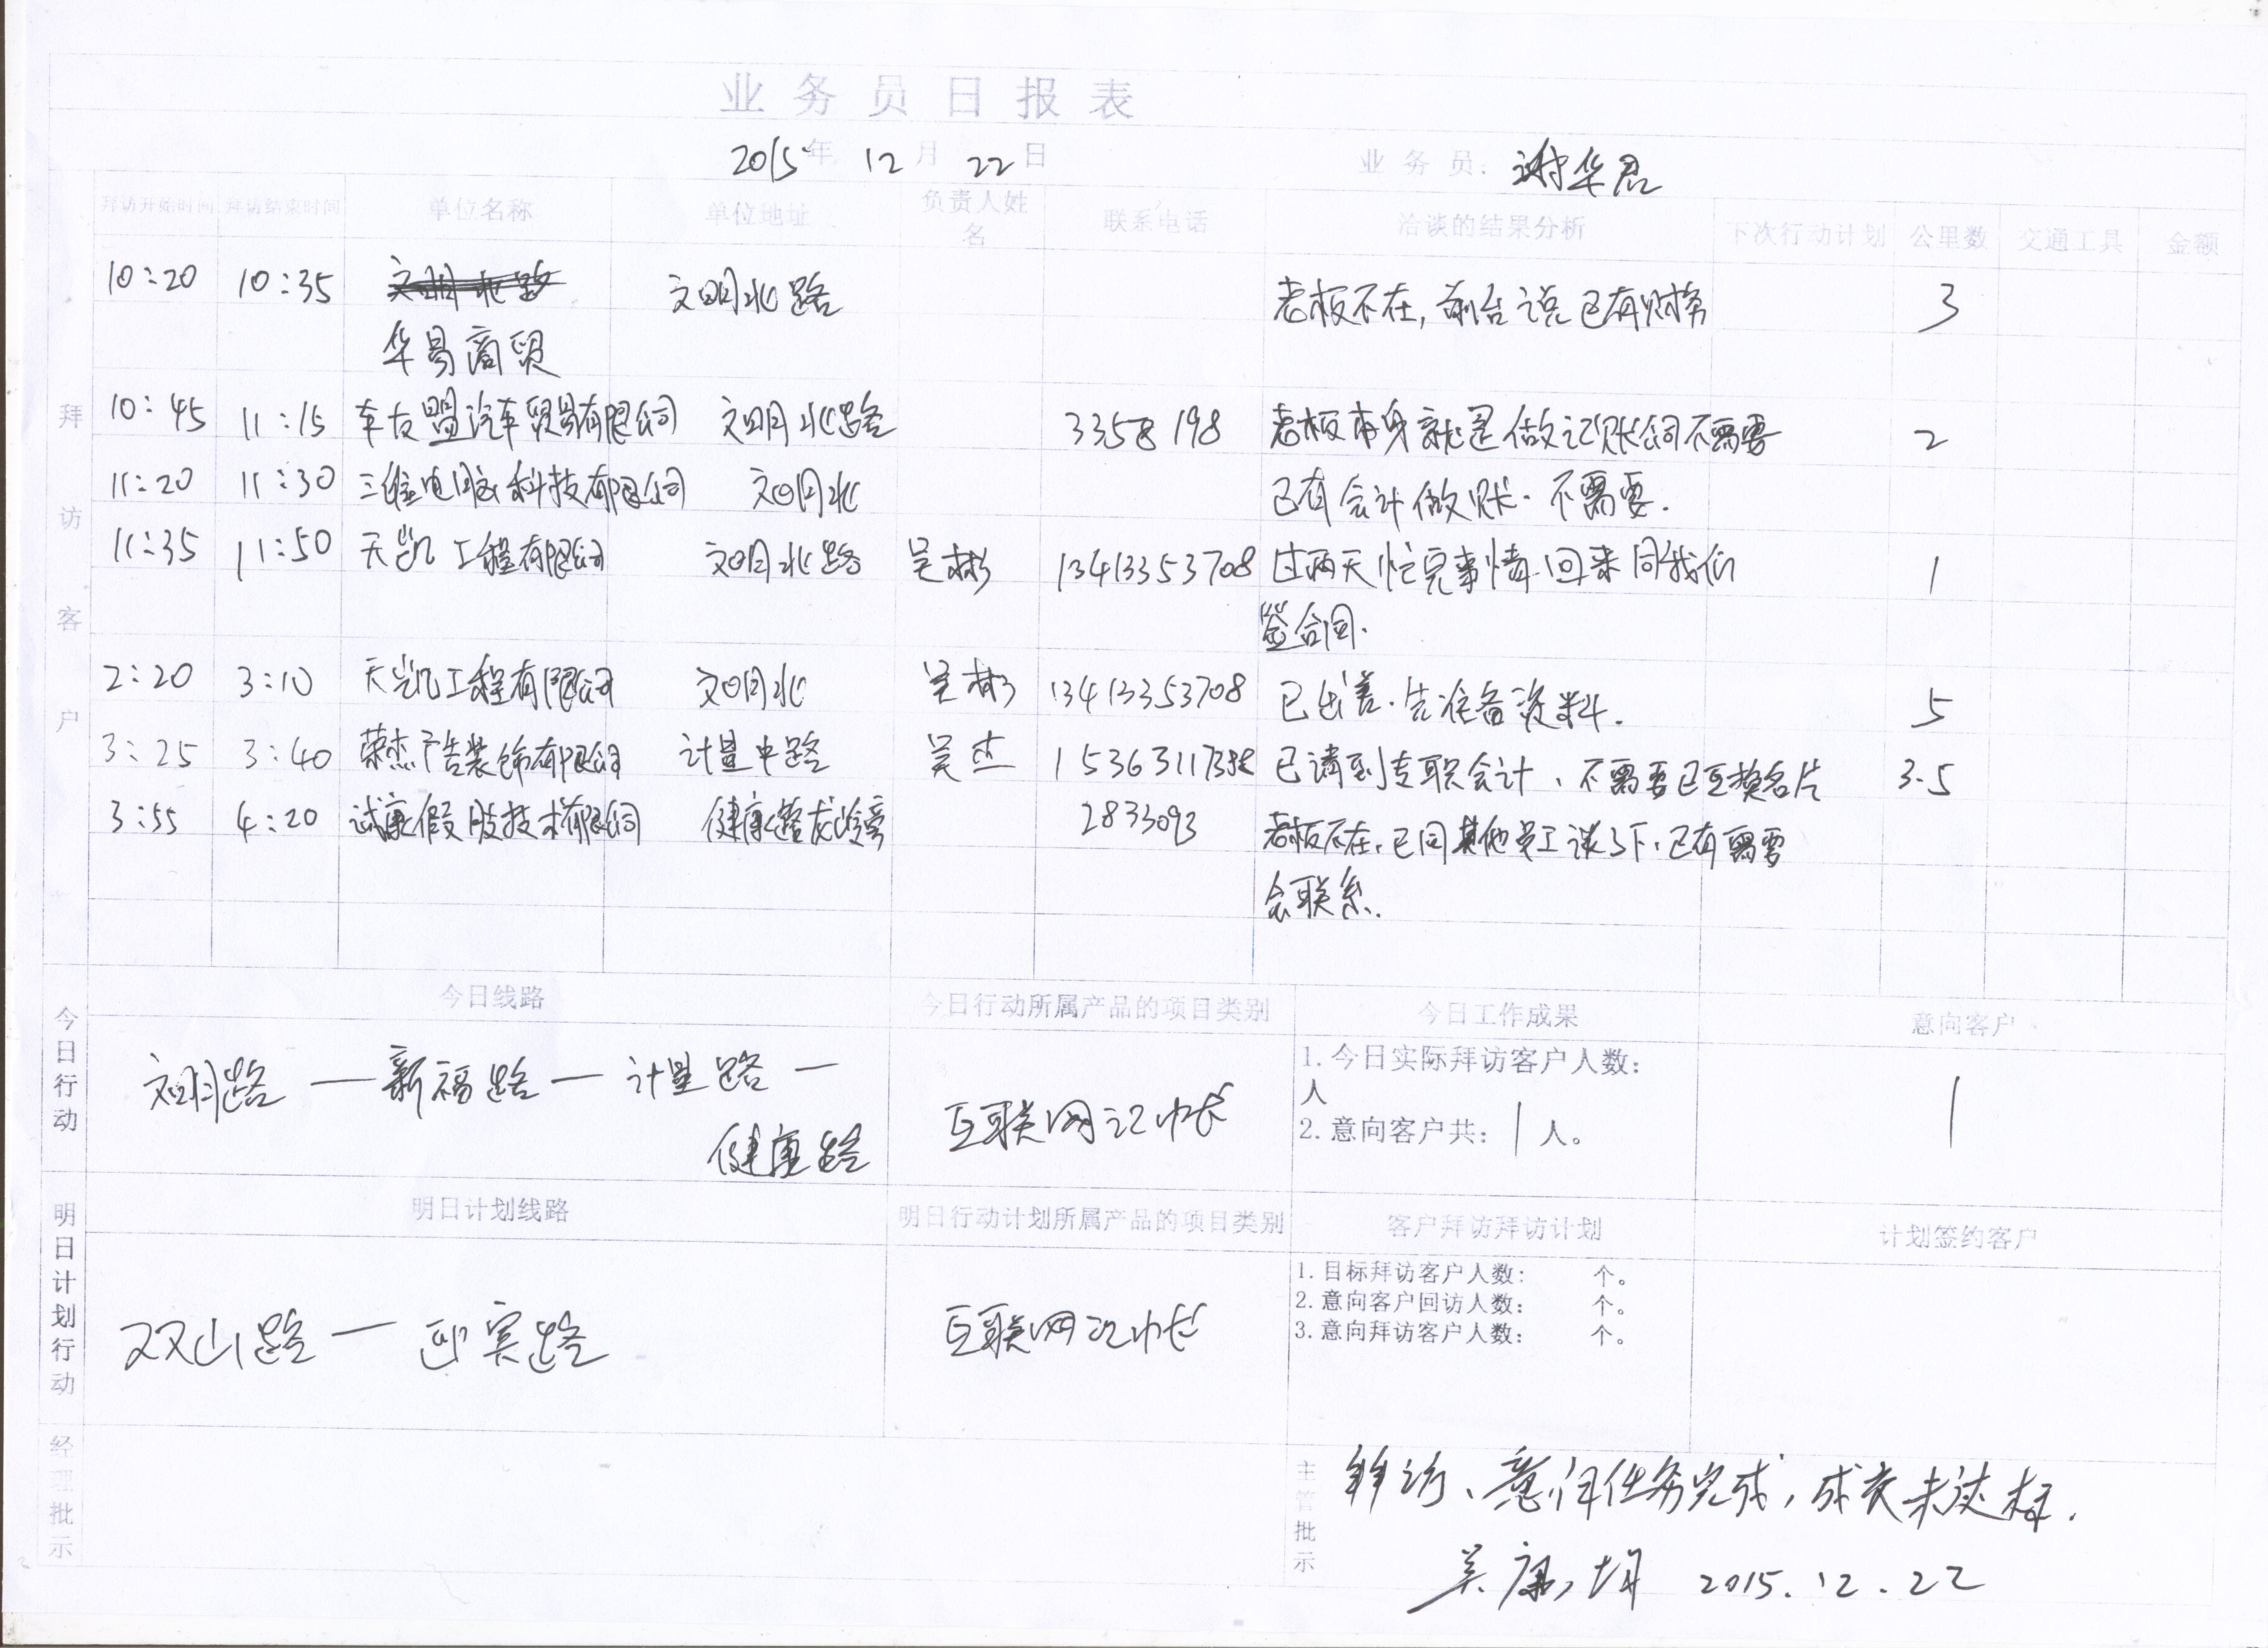 业务员日报表
2015年 12月 22日 业务员: 谢华君
拜访开始时间 拜访结束时间 单位名称 单位地址 负责人姓名 联系电话 洽谈的结果分析 下次行动计划 公里数 交通工具 金额
拜访客户
10:20 10:35 文明北路 老板不在,前台说已有财务 3
华易商贸
10:45 11:15 车友盟汽车贸易有限公司 文明北路 3358198 老板本身就是做记账公司不需要 2
11:20 11:30 三维电脑科技有限公司 文明北 已有会计做账.不需要.
11:35 11:50 天凯工程有限公司 文明北路 吴彬 13413353708 过两天忙完事情回来同我们 1
签合同.
2:20 3:10 天凯工程有限公司 文明北 吴彬 13413353708 已出差.先准备资料. 5
3:25 3:40 荣杰广告装饰有限公司 计量中路 吴杰 已请到专职会计,不需要已互换名片 3.5
3:55 4:20 假肢技术有限公司 2833093 老板不在,已同其他员工谈了下,已有需要
会联系.
今日行动
今日线路 今日行动所属产品的项目类别 今日工作成果 意向客户
文明路—新福路—计量路—
健康路
互联网记帐
1.今日实际拜访客户人数:
人
2.意向客户共: 1 人。
1
明日计划行动
明日计划线路 明日行动计划所属产品的项目类别 客户拜访拜访计划 计划签约客户
双山路—迎宾路
互联网记帐
1.目标拜访客户人数: 个。
2.意向客户回访人数: 个。
3.意向拜访客户人数: 个。
经理批示
主管批示
拜访、意向任务完成,成交未达标.
2015.12.22